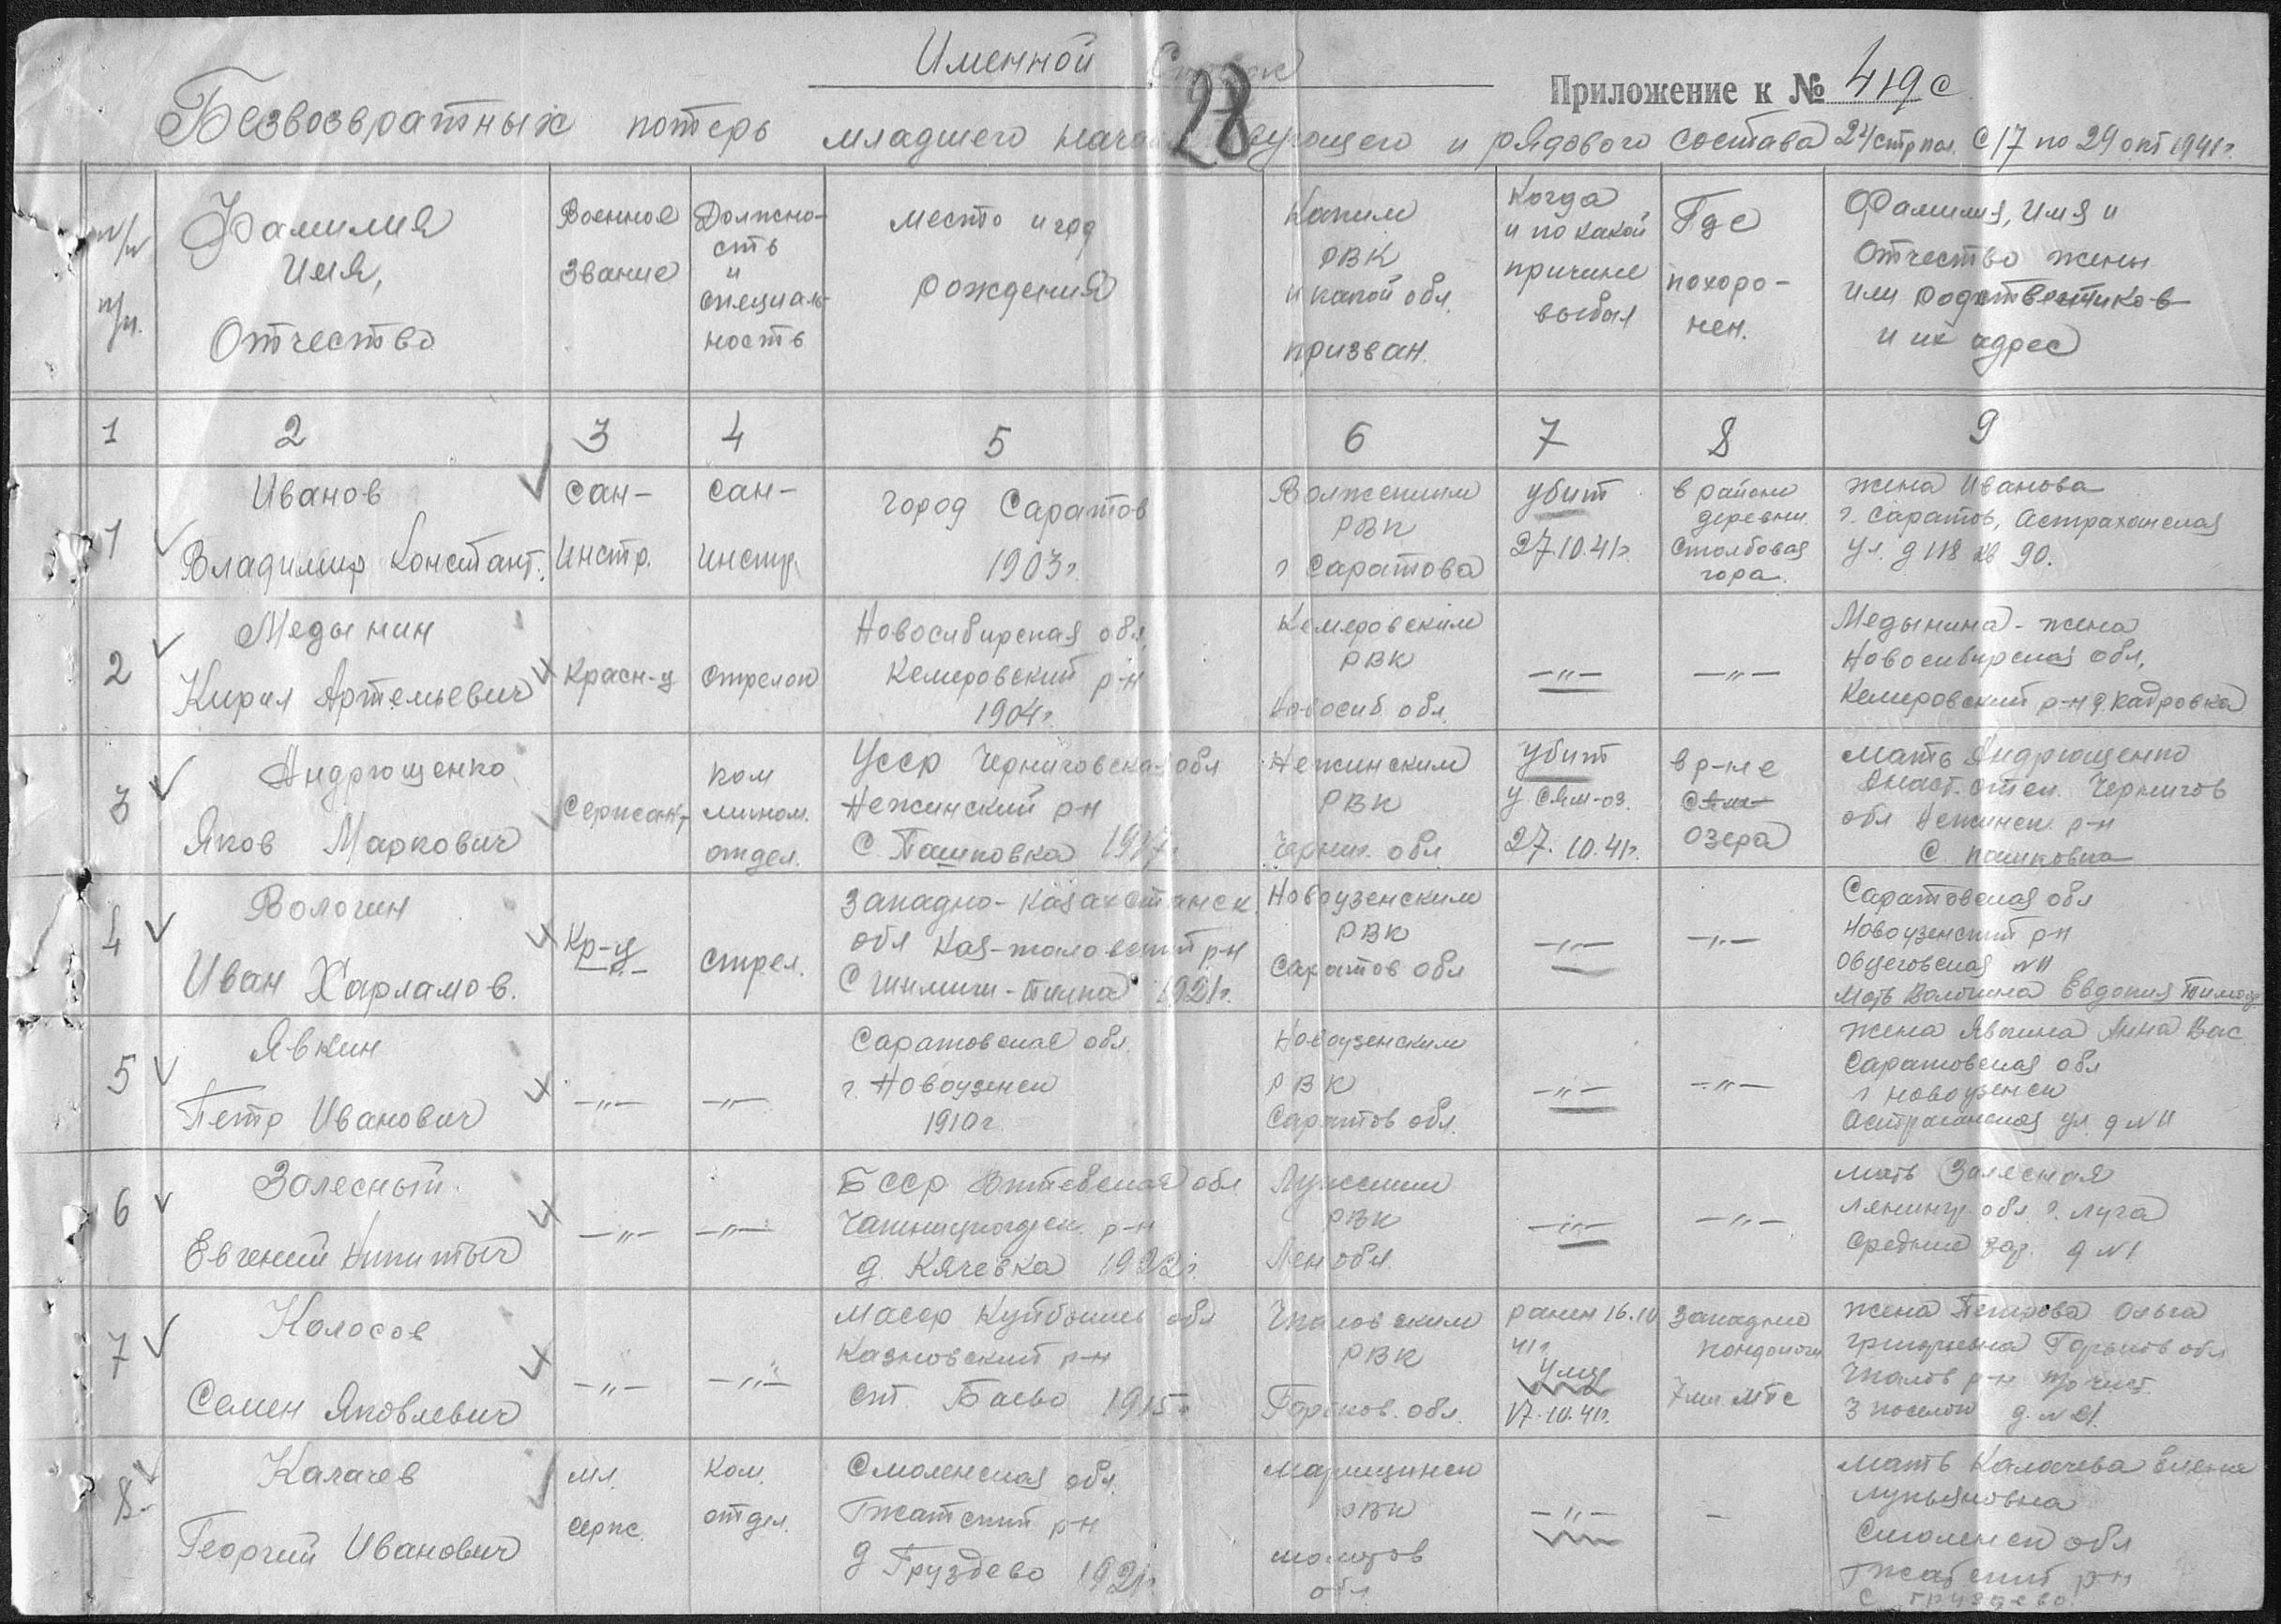 Именной Список
Приложение к № 419с
28
Безвозвратных потерь младшего нач вующего и рядового состава 24 стр пол. с 17 по 29 окт 1941г.
№/№ п/п.
Фамилия Имя, Отчество
Военное звание
Должность и специальность
место и год рождения
Каким РВК и какой обл. призван.
Когда и по какой причине выбыл
Где похоронен.
Фамилия, Имя и Отчество жены или родственников и их адрес
1 2 3 4 5 6 7 8 9
1
Иванов
Владимир Констант.
Сан-
Инстр.
Сан-
Инстр.
город Саратов
1903г.
Волжским
РВК
г Саратова
убит
27.10.41г.
в районе
деревни
Столбовая
гора.
жена Иванова
г. Саратов, Астраханская
ул. д 118 кв 90.
2
Медынин
Кирил Артемьевич
Красн-ц
Стрелок
Новосибирская обл.
Кемеровский р-н
1904г.
Кемеровским
РВК
Новосиб обл.
-"-
-"-
Медынина - жена
Новосибирская обл,
Кемеровский р-н д. Кадровка
3
Андрющенко
Яков Маркович
Сержант
ком
мином.
отдел.
УССР Черниговская обл
Нежинский р-н
С. Пашковка 1917г
Нежинским
РВК
Черниг. обл
убит
у Сям-оз.
27.10.41г.
в р-не
Сям-
озера
Мать Андрющенко
Анаст. Степ. Чернигов
обл Нежинск. р-н
С. Пашковка
4
Вологин
Иван Харламов.
Кр-ц
-"-
Стрел.
Западно-Казахстанск.
обл р-н
С 1921г.
Новоузенским
РВК
Саратов обл
-"-
-"-
Саратовская обл
Новоузенский р-н
№11
Мать Вологина Евдокия
5
Явкин
Петр Иванович
-"-
-"-
Саратовская обл.
г. Новоузенск
1910г.
Новоузенским
РВК
Саратов обл.
-"-
-"-
жена Явкина Анна Вас
Саратовская обл
г Новоузенск
Астраханская ул. д №11
6
Залесный
Евгений Никитыч
-"-
-"-
БССР Витебская обл
р-н
д. Кячевка 1922г.
Лужским
РВК
Лен обл.
-"-
-"-
мать Залесная
Ленингр. обл. г. Луга
Средние д №1
7
Колосов
Семен Яковлевич
-"-
-"-
МАССР Куйбышев обл
р-н
ст. Баево 1915г
Чкаловским
РВК
Горьков. обл.
ранен 16.10
41г
умер
17.10.41г.
Западнее
Кондопоги
7 км. МТС
жена Ольга
Григорьевна Горьков обл
Чкалов р-н
3 поселок д. № 21.
8
Калачев
Георгий Иванович
мл.
серж.
Ком.
отдел.
Смоленская обл.
Гжатский р-н
д Груздево 1921г
РВК
Молотов
обл.
-"-
-
мать Калачева Елена
Лукьяновна
Смоленск обл
Гжатский р-н
с Груздево.